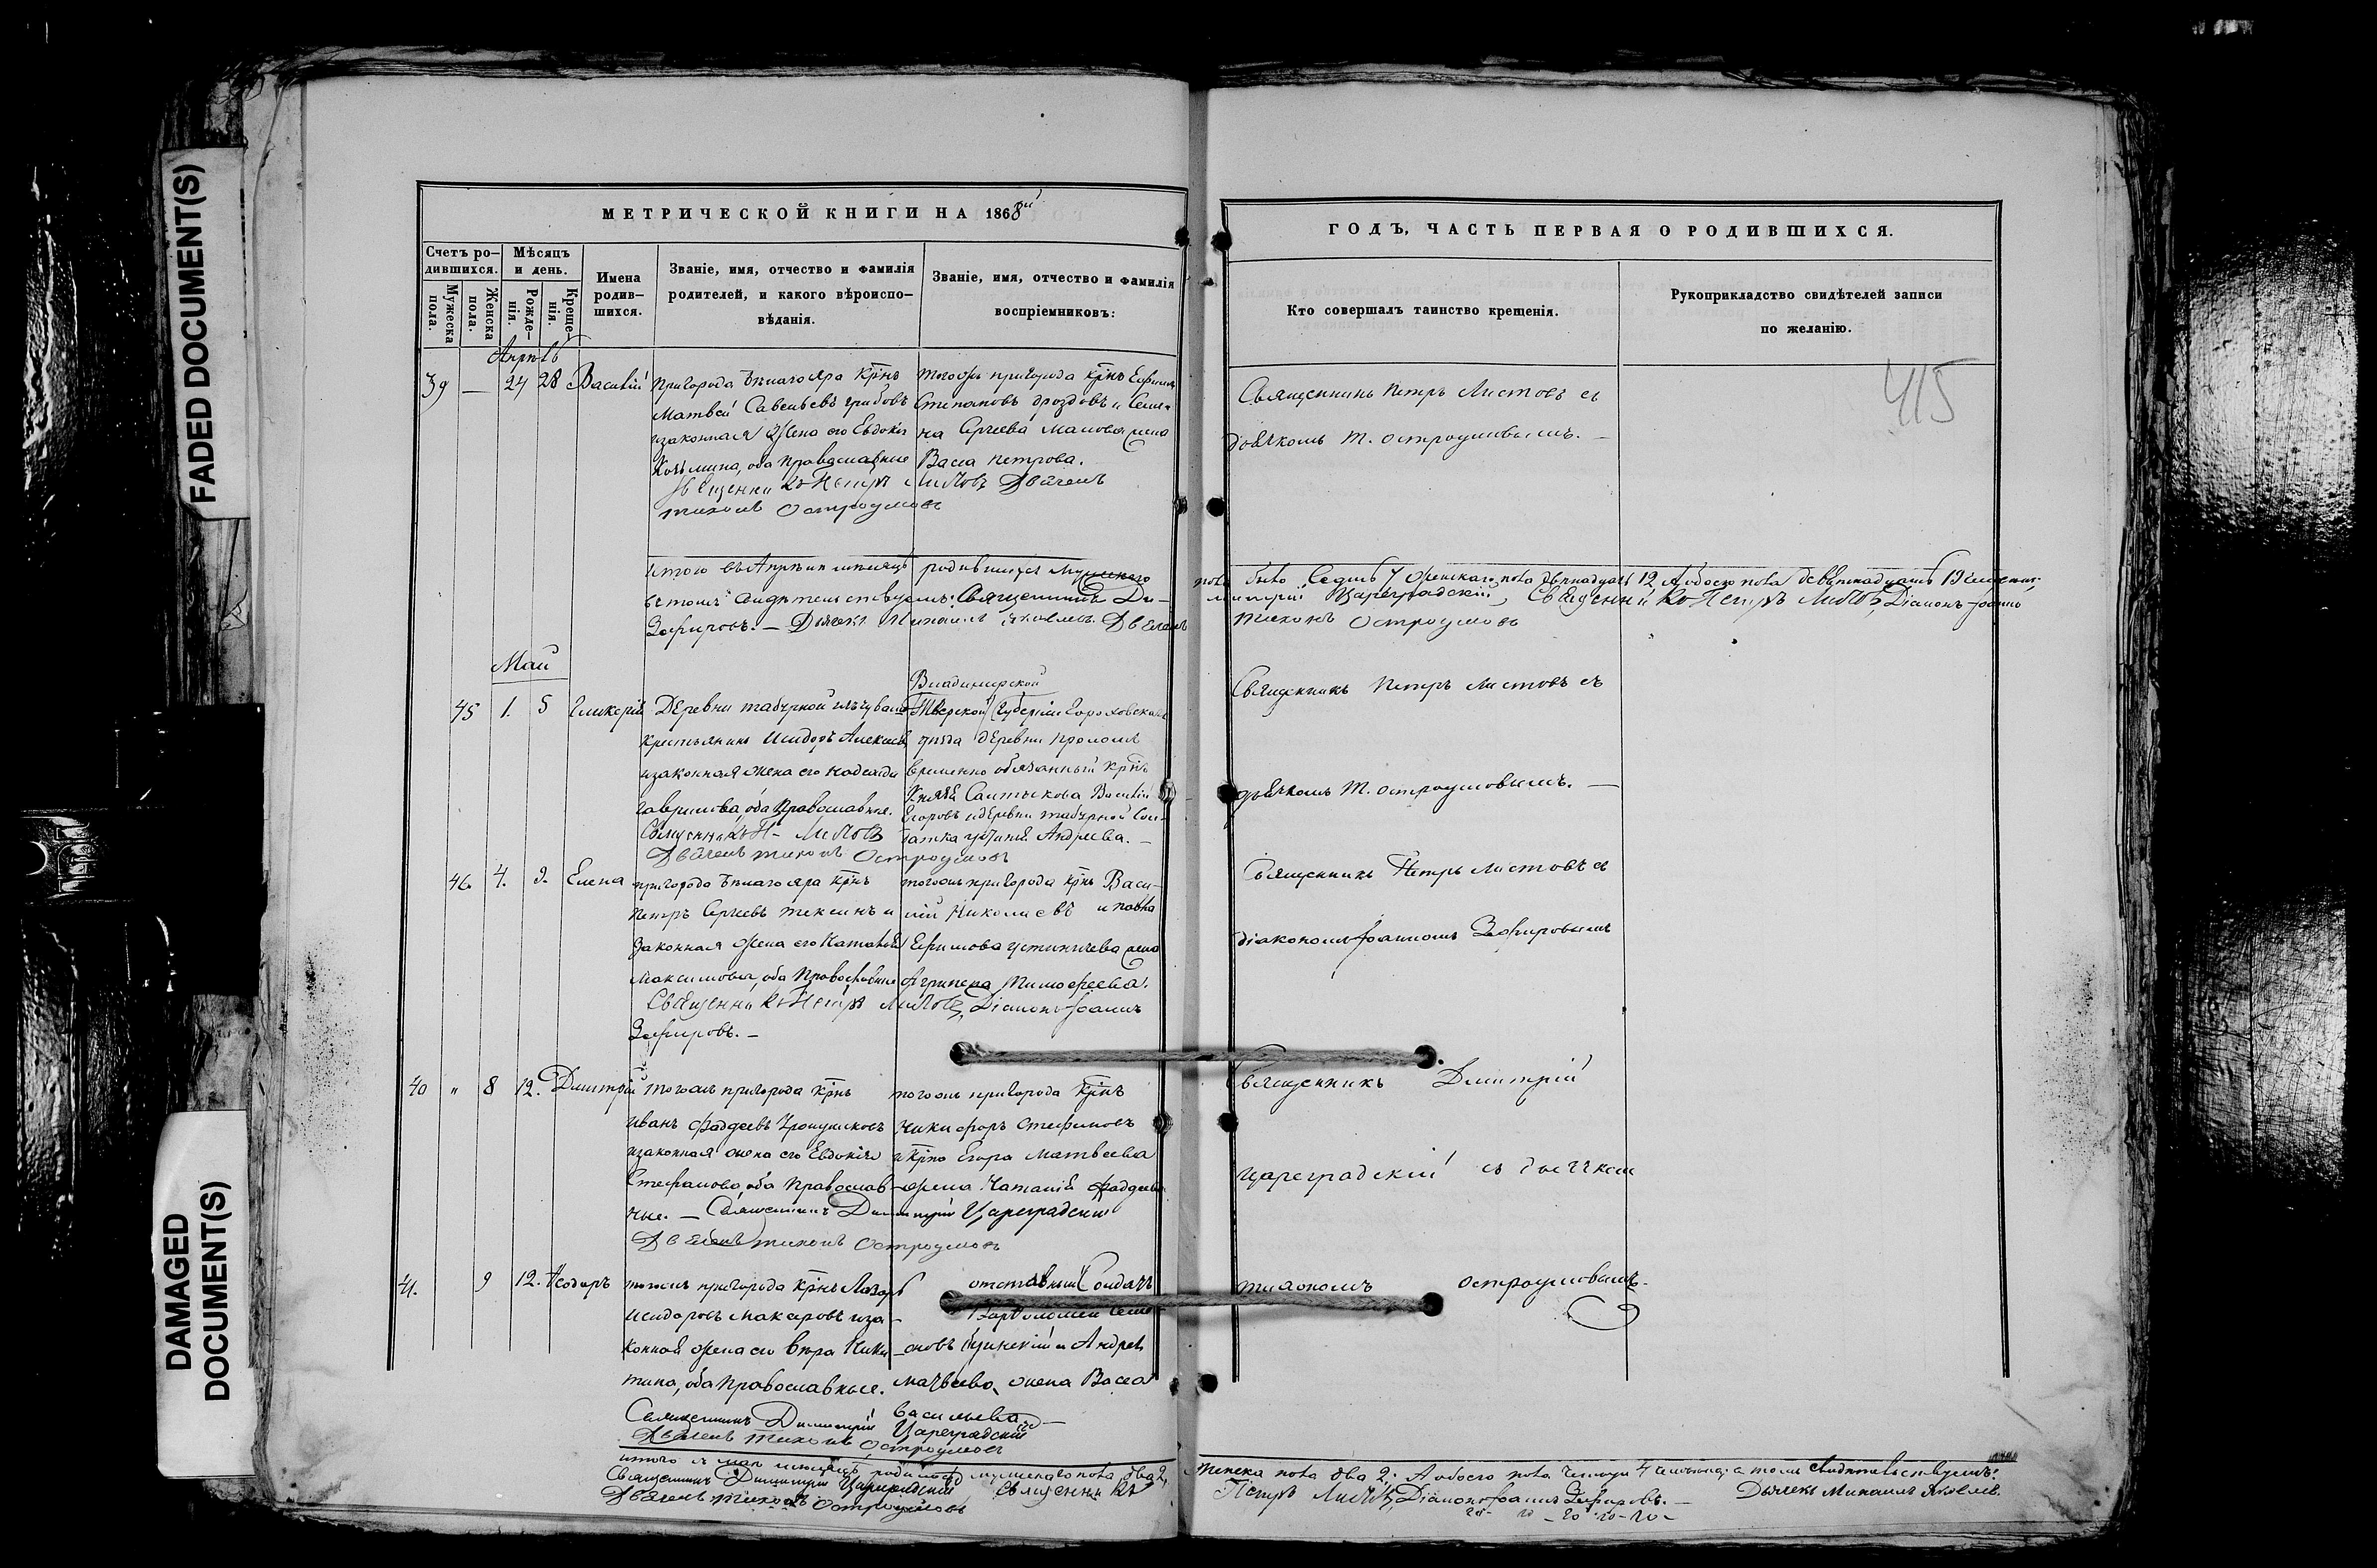 FADED DOCUMENT(S)
DAMAGED
DOCUMENT(S)
МЕТРИЧЕСКОЙ КНИГИ НА 1868й
Счетъ ро-
дившихся.
Мужеска
пола.
Женска
пола.
Мѣсяцъ
и день.
Рожде-
нія.
Креще-
нія.
Имена
родив-
шихся.
Званіе, имя, отчество и фамилія
родителей, и какого вѣроиспо-
вѣданія.
Званіе, имя, отчество и фамилія
воспріемниковъ:
Апрѣль
39 — 24 28 Василій
Пригорода Бѣлаго Яра Кр̃нъ
Матвей Савельевъ Грибовъ
и законная Жена его Евдокія
Козьмина, оба Православные
Священникъ Петръ Листовъ Дьячекъ
Тихонъ Остроумовъ
тогожъ пригорода кр̃нъ Ефимъ
Степановъ Дроздовъ и Семе-
на Сергеева Малова жена
Васса Петрова.
Итого въ Апрѣлѣ мѣсяцѣ родившихся Мужескаго
въ томъ свидѣтельствуемъ: Священникъ Ди-
Зефировъ. — Дьячекъ Михаилъ Яковлевъ. Дьячекъ
Май
45 1. 5 Гликерія
Деревни табурной
крестьянинъ Исидоръ Алексеевъ
и законная жена его Надежда
Гаврилова, оба Православные.
Священникъ П. Листовъ
Дьячекъ Тихонъ Остроумовъ
Владимирской
Тверской Губерніи Гороховскаго
уѣзда деревни
временно обязанный кр̃нъ
Князя Салтыкова Василій
Егоровъ и деревни табурной Сол-
датка Андреева. —
46. 4. 9. Елена
пригорода Бѣлаго яра кр̃нъ
Петръ Сергеевъ и
Законная жена его Наталья
Максимова, оба Православные
Священникъ Петръ Листовъ, Діаконъ Іоаннъ
Зефировъ. —
тогожъ пригорода кр̃нъ Васи-
лій Николаевъ и Павла
Ефимова жена
Агрипена Тимофеева.
40 " 8 12. Димитрій
тогожъ пригорода кр̃нъ
Иванъ Фаддеевъ
и законная жена его Евдокія
Стефанова, оба Православ-
ные. — Священникъ Димитрій Цареградскій
Дьячекъ Тихонъ Остроумовъ
тогожъ пригорода кр̃нъ
Никифоръ Стефановъ
и кр̃на Егора Матвеева
жена Наталія Фаддеева
41. 9 12. Исидоръ
тогожъ пригорода кр̃нъ Лазарь
Исидоровъ Макаровъ и за-
конная жена его Вѣра Ники-
тина, оба Православные.
Священникъ Димитрій Цареградскій
Дьячекъ Тихонъ Остроумовъ
отставный Солдатъ
Варѳоломей Семе-
оновъ и Андрея
Матвеева, жена Васса
Васильева
итого въ маѣ мѣсяцѣ родилось мужескаго пола два 2,
Священникъ Димитрій Цареградскій Священникъ
Дьячекъ Тихонъ Остроумовъ
ГОДЪ, ЧАСТЬ ПЕРВАЯ О РОДИВШИХСЯ.
Кто совершалъ таинство крещенія.
Рукоприкладство свидѣтелей записи
по желанію.
415
Священникъ Петръ Листовъ съ
дьячкомъ Т. Остроумовымъ. —
пола было Седмь 7 Женскаго пола двенадцать 12 А обоего пола девятнадцать 19
митрій Цареградскій, Священникъ Петръ Листовъ, Діаконъ Іоаннъ
Тихонъ Остроумовъ
Священникъ Петръ Листовъ съ
дьячкомъ Т. Остроумовымъ. —
Священникъ Петръ Листовъ съ
діакономъ Іоанномъ Зефировымъ
Священникъ Димитрій
Цареградскій съ дьячкомъ
Тихономъ Остроумовымъ.
Женска пола два 2. А обоего пола четыре 4 въ томъ свидѣтельствуемъ:
Петръ Листовъ, Діаконъ Іоаннъ Зефировъ. — Дьячекъ Михаилъ Яковлев.